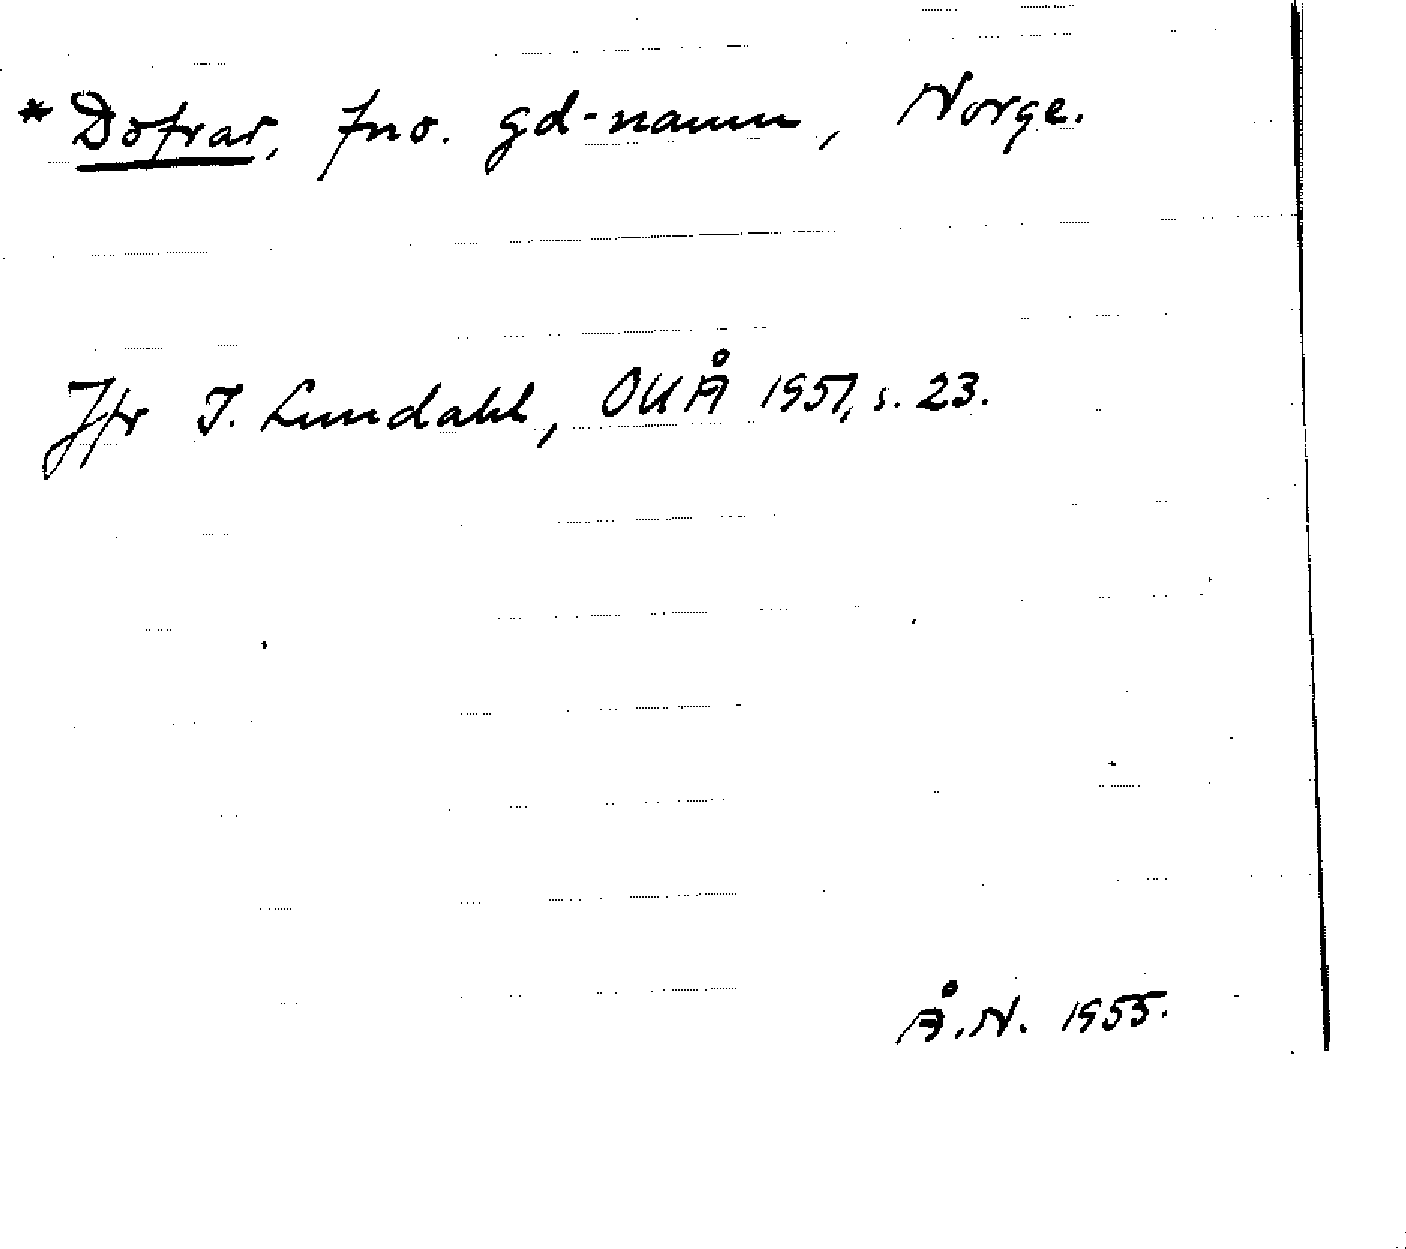 * Dofrar, fno. gd-namn, Norge.
Jfr I. Lundahl, OUÅ 1951, s. 23.
Å.N. 1955.